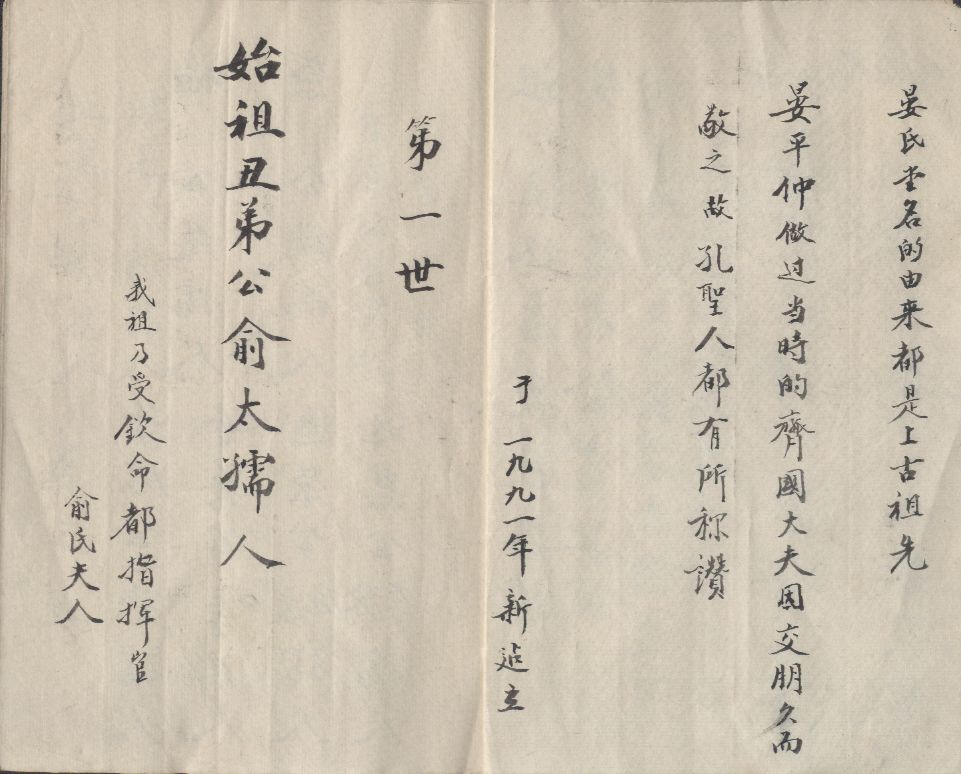 晏氏堂名的由来都是上古祖先
晏平仲做过当時的齊國大夫因交朋久而
敬之故孔聖人都有所称讚
于一九九一年新迠立
第一世
始祖丑弟公俞太孺人
我祖乃受欽命都指挥官
俞氏夫人